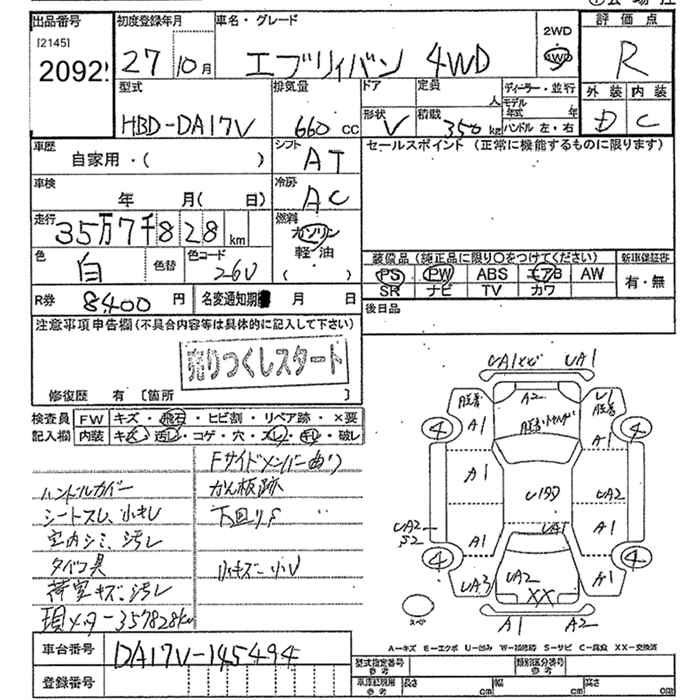 出品番号
[2145]
2092
初度登録年月
27年 10月
車名・グレード
エブリィバン 4WD
2WD
4WD
評価点
R
外装 内装
D C
型式
HBD-DA17V
排気量
660 cc
ドア
形状
V
定員
人
積載
350 kg
ディーラー・並行
モデル
年式 年
ハンドル 左・右
車歴
自家用・( )
シフト
AT
セールスポイント (正常に機能するものに限ります)
車検
年 月( 日)
冷房
AC
走行
35万7千828 km
燃料
ガソリン
軽・油
( )
色
白
色替
色コード
26U
装備品 (純正品に限り○をつけてください)
新車保証書
PS PW ABS エアB AW
SR ナビ TV カワ
有・無
R券
8,400 円
名変通知期 月 日
後日品
注意事項申告欄 (不具合内容等は具体的に記入して下さい)
売りつくしスタート
修復歴 有 [箇所 ]
検査員 FW キズ・飛石・ヒビ割・リペア跡・×要
記入欄 内装 キズ・汚レ・コゲ・穴・スレ・キレ・破レ
Fサイドメンバー曲り
ハンドルカバー かん板跡
シートスレ、小キレ 下回りS
室内シミ、汚レ
タバコ臭 小キズ一小U
荷室キズ、汚レ
現メーター357828km
UA1 UA1
A2
A1 A1
4 4
A1
U UA2
UA2
S2
A1 UA1 A1
4 4
UA3 UA2 A1
XX
スペア
A1 A2
A=キズ E=エクボ U=凹み W=補修跡 S=サビ C=腐食 XX=交換済
車台番号
DA17V-145494
登録番号
型式指定番号
参考
類別区分番号
参考
車庫証明用
参考
長さ cm 幅 cm 高さ cm